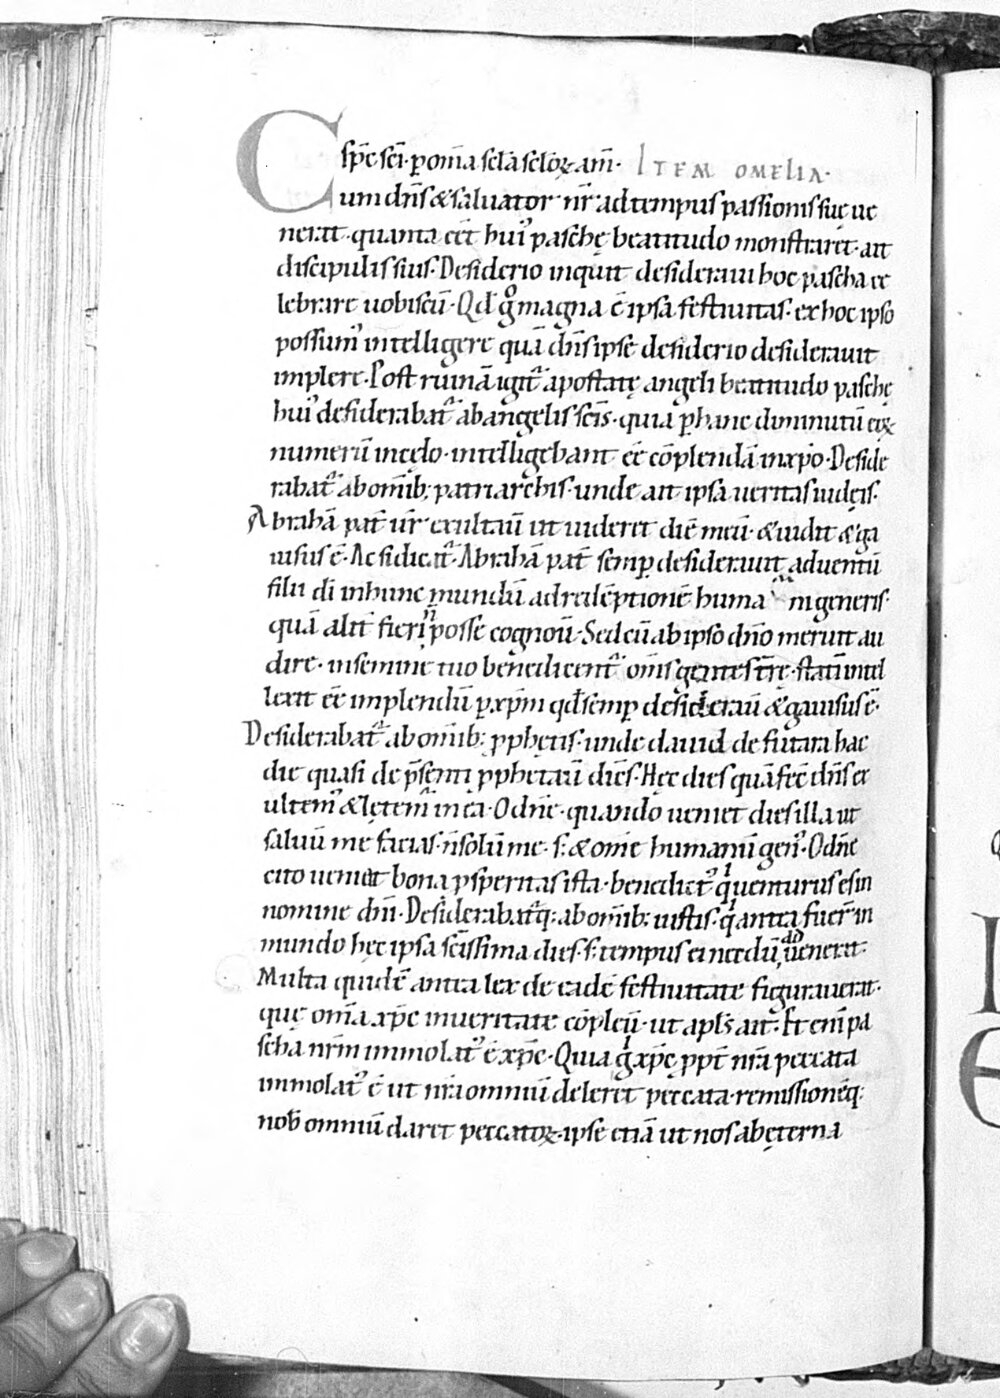 sp̄c sc̄i · ꝑ om̄ia sc̄la sc̄loꝝ am̄ · ITEM OMELIA ·
Cum dn̄s & saluator nr̄ ad tempus passionis suę ue
nerit · quanta eēt huiꝰ paschę beatitudo monstraret · ait
discipulis suis · Desiderio inquit desideraui hoc pascha ce
lebrare uobiscū · Qd̄ gͦ magna ē ipsa festiuitas · ex hoc ipso
possumꝰ intelligere quā dn̄s ipse desiderio desiderauit
implere · Post ruinā igit᷑ apostatę angeli beatitudo paschę
huiꝰ desiderabat᷑ ab angelis sc̄is · quia ꝑ hanc diminutū eoꝝ
numerū in cęlo · intelligebant eē cōplendā in xp̄o · Deside
rabat᷑ ab om̄ib; patriarchis · unde ait ipsa ueritas iudęis ·
Abrahā pat̄ ur̄ exultauī ut uideret diē meū · & uidit & ga
uisus ē · Ac si dicat᷑ · Abrahā pat̄ semꝑ desiderauit aduentū
filii dī in hunc mundū ad redēptionē huma ni generis ·
quā alit̄ fieri ñ posse cognouī · Sed cū ab ipso dn̄o meruit au
dire · in semine tuo benedicent᷑ om̄s gentes tr̄ę · statī intel
lexit eē implendū ꝑ xp̄m qd̄ semꝑ desiderauī & gauisus ē ·
Desiderabat᷑ ab om̄ib; ꝓphętis · unde dauid de futura hac
die quasi de p̄senti ꝓphetauī dicēs · Hęc dies quā fec̄ dn̄s ex
ultemꝰ & lętemꝰ in ea · O dn̄e · quando ueniet dies illa ut
saluū me facias · n̄ solū me · s; & om̄e humanū genꝰ · O dn̄e
cito ueniat bona ꝓsperitas ista · benedictꝰ qͥ uenturus es in
nomine dn̄i · Desiderabat᷑q; ab om̄ib; iustis · qͥ antea fuer̄ in
mundo hęc ipsa sc̄issima dies · s; tempus ei necdū uenerat ·
Multa quidē antea lex de eadē festiuitate figurauerat ·
quę om̄ia xp̄c in ueritate cōpleuī · ut apl̄s ait · Et enī pa
scha nr̄m immolatꝰ ē xp̄c · Quia gͦ xp̄c ꝓpt̄ nr̄a peccata
immolatꝰ ē ut nr̄a omniū deleret peccata · remissionēq;
nob̄ omniū daret peccatoꝝ · ipse etiā ut nos ab ęterna